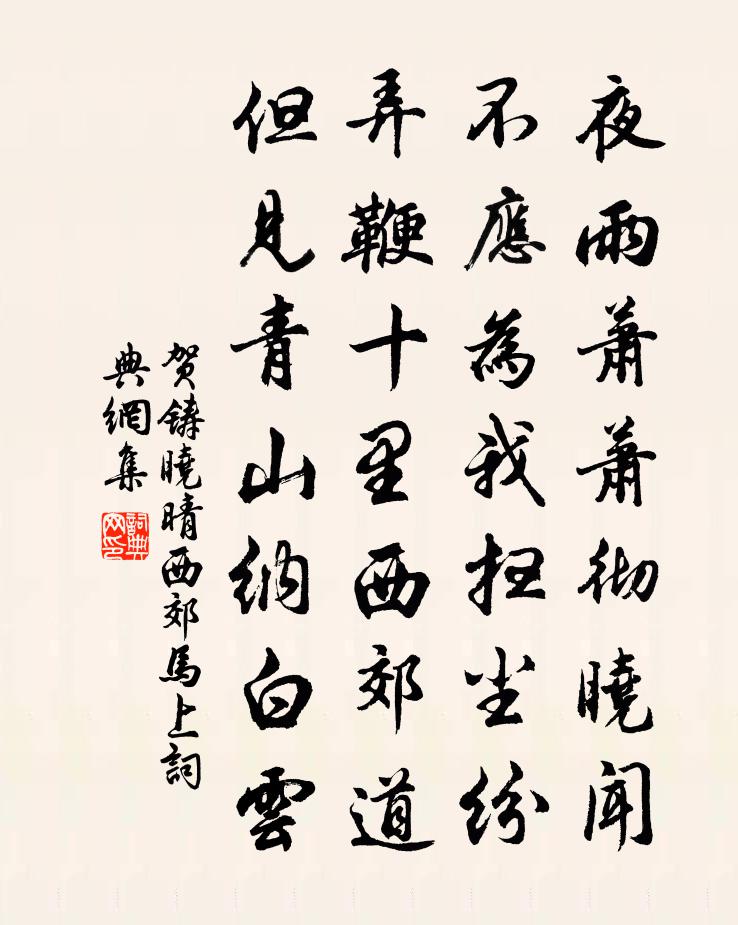 夜雨蕭蕭彻曉聞
不應為我尘紛
弄鞭十里西郊道
但見青山納白雲
贺鑄曉晴西郊馬上詞
典網集
詞典
网印